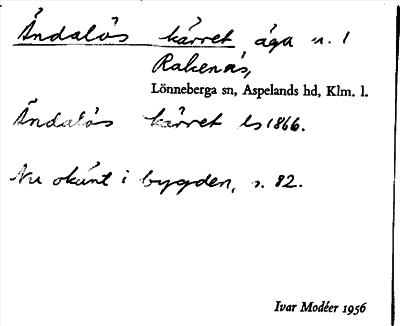 Ändalös kärret äga n. 1
Rakenäs,
Lönneberga sn, Aspelands hd, Klm. l.
Ändalös kärret ls 1866.
Nu okänt i bygden, s. 82.
Ivar Modéer 1956